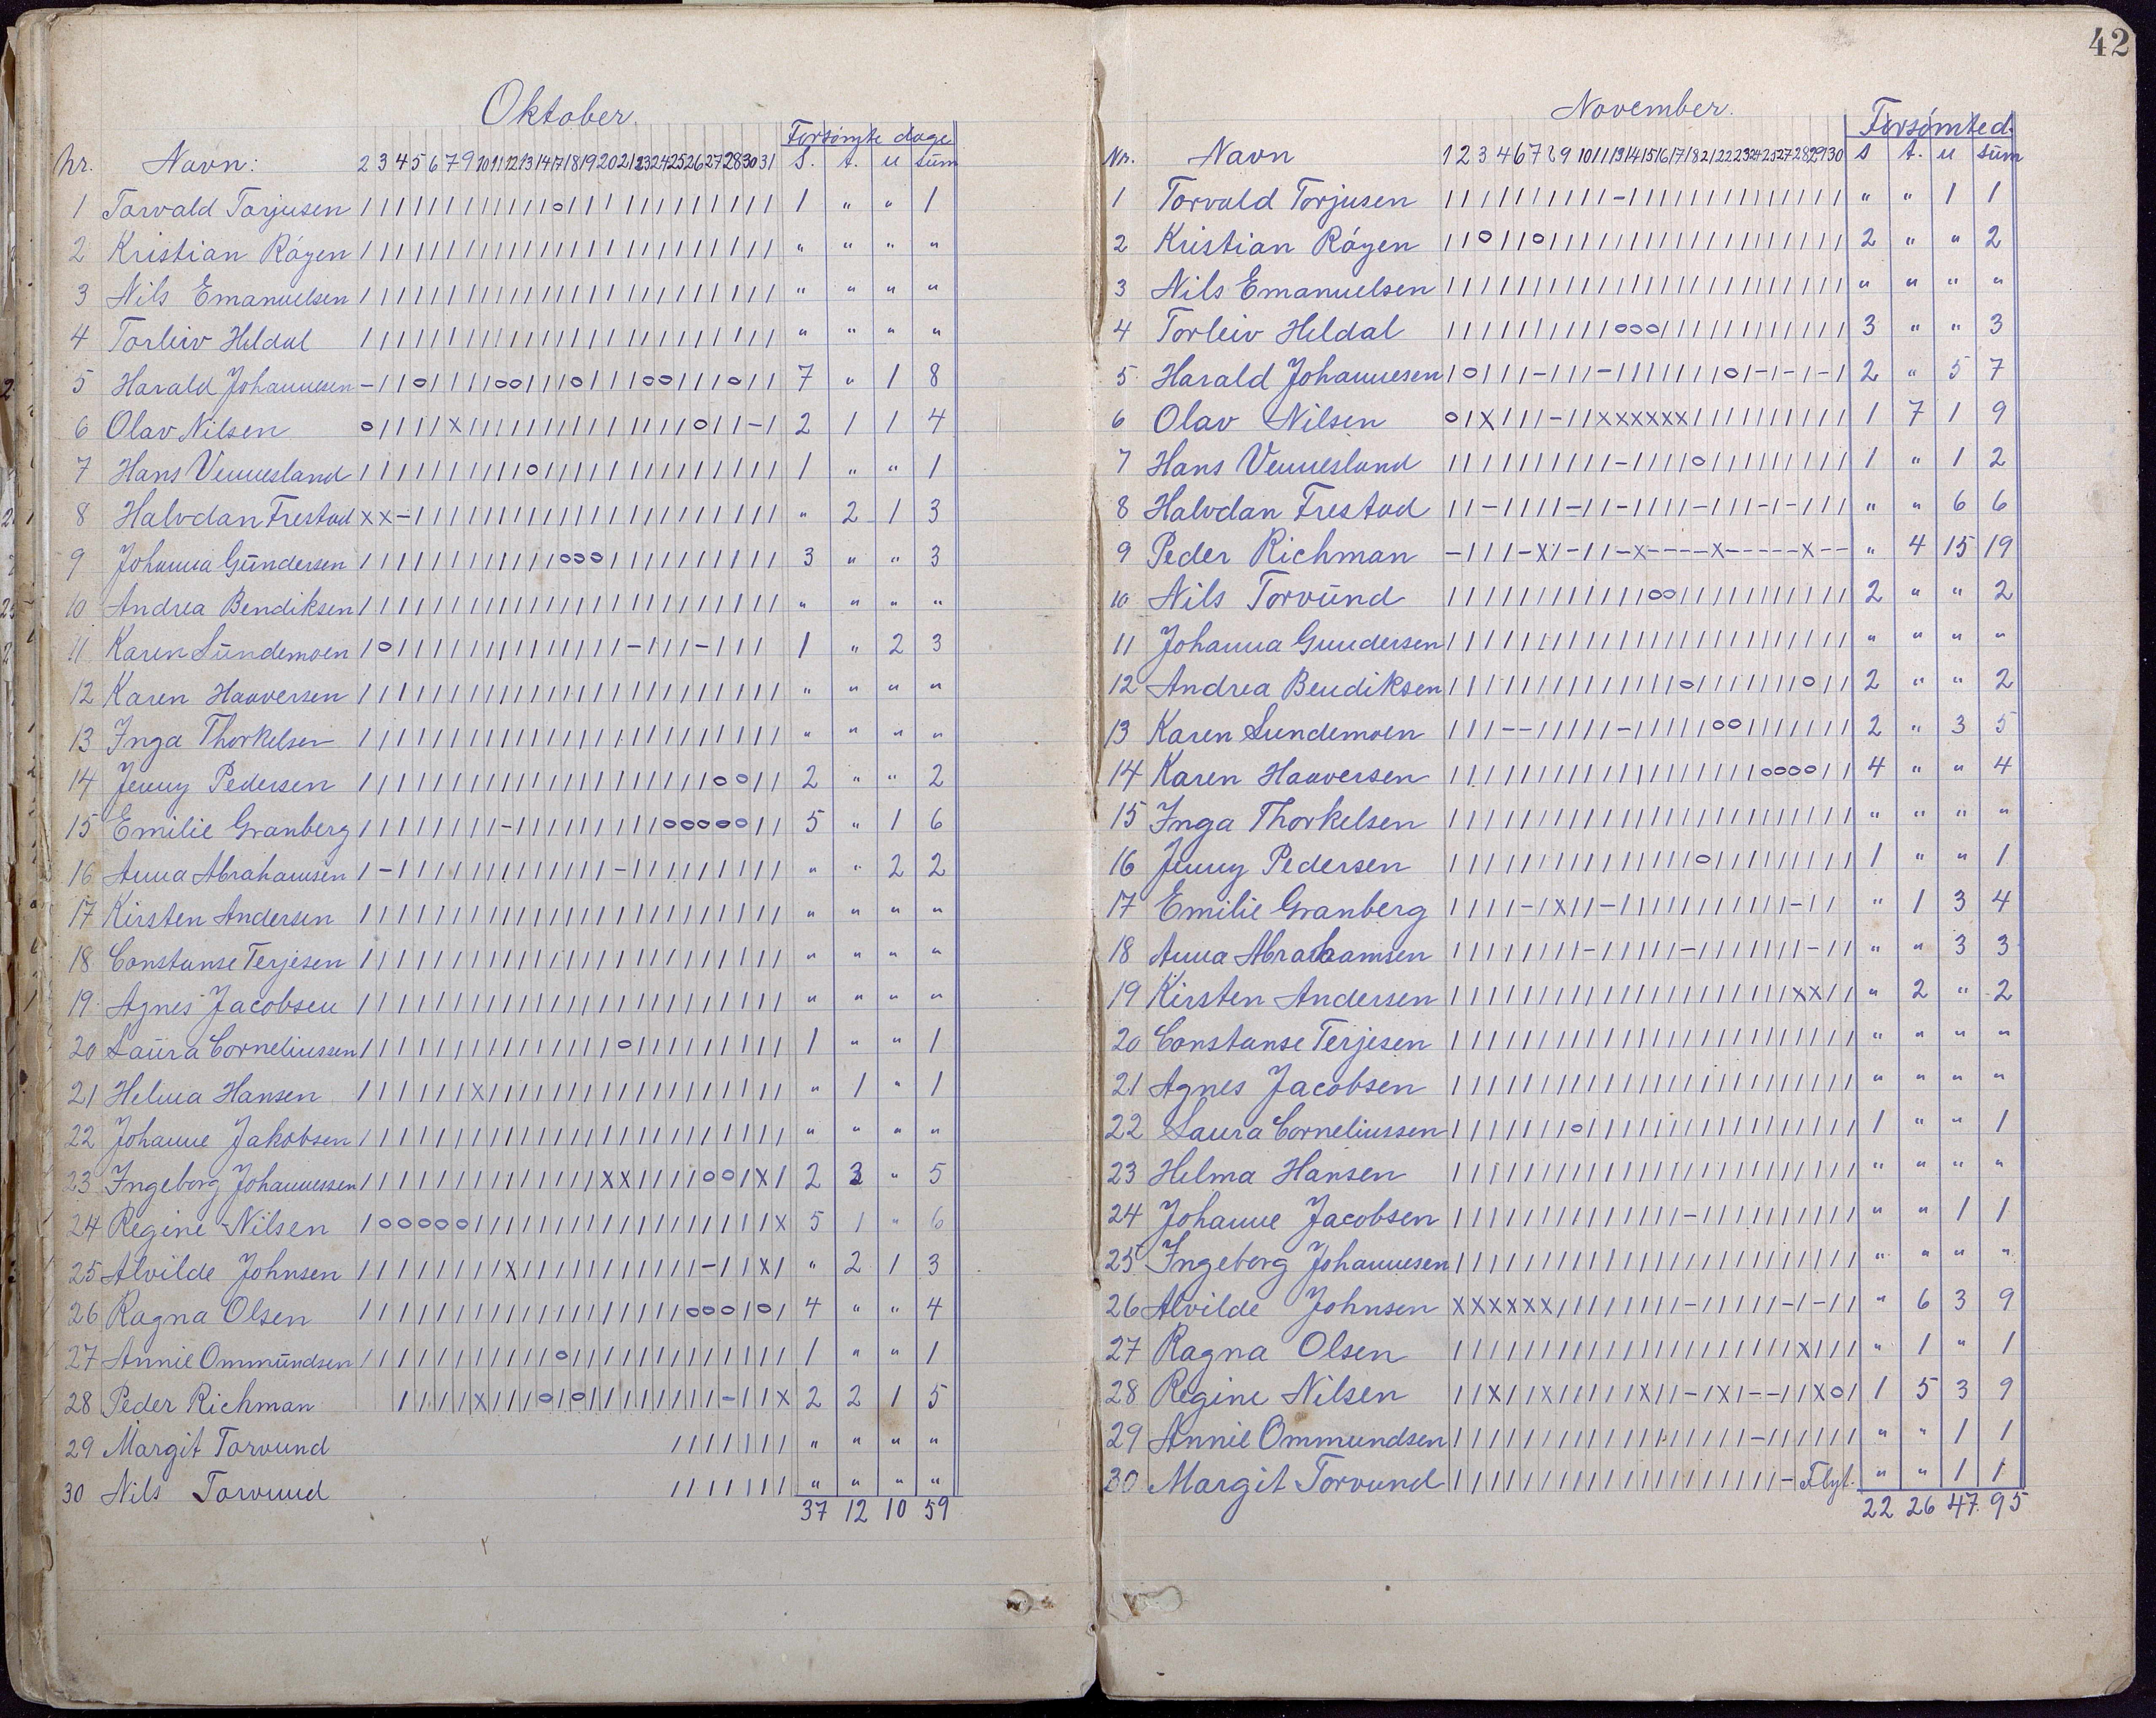 Oktober.
Forsømte dage
Nr. Navn: 2 3 4 5 6 7 9 10 11 12 13 14 17 18 19 20 21 23 24 25 26 27 28 30 31 S. t. u sum
1 Torvald Torjusen 1 " " 1
2 Kristian Røyen " " " "
3 Nils Emanuelsen " " " "
4 Torleiv Heldal " " " "
5 Harald Johannesen 7 " 1 8
6 Olav Nilsen 2 1 1 4
7 Hans Vennesland 1 " " 1
8 Halvdan Frestad " 2 1 3
9 Johanna Gundersen 3 " " 3
10 Andrea Bendiksen " " " "
11 Karen Sundemoen 1 " 2 3
12 Karen Haaversen " " " "
13 Inga Thorkelsen " " " "
14 Jenny Pedersen 2 " " 2
15 Emilie Granberg 5 " 1 6
16 Anna Abrahamsen " " 2 2
17 Kirsten Andersen " " " "
18 Constanse Terjesen " " " "
19 Agnes Jacobsen " " " "
20 Laura Corneliussen 1 " " 1
21 Helma Hansen " 1 " 1
22 Johanne Jakobsen " " " "
23 Ingeborg Johannessen 2 3 " 5
24 Regine Nilsen 5 1 " 6
25 Alvilde Johnsen " 2 1 3
26 Ragna Olsen 4 " " 4
27 Annie Ommundsen 1 " " 1
28 Peder Richman 2 2 1 5
29 Margit Torvund " " " "
30 Nils Torvund " " " "
37 12 10 59
42
November.
Forsømte d.
Nr. Navn 1 2 3 4 6 7 8 9 10 11 13 14 15 16 17 18 21 22 23 24 25 27 28 29 30 s t. u sum
1 Torvald Torjusen " " 1 1
2 Kristian Røyen 2 " " 2
3 Nils Emanuelsen " " " "
4 Torleiv Heldal 3 " " 3
5 Harald Johannesen 2 " 5 7
6 Olav Nilsen 1 7 1 9
7 Hans Vennesland 1 " 1 2
8 Halvdan Frestad " " 6 6
9 Peder Richman " 4 15 19
10 Nils Torvund 2 " " 2
11 Johanna Gundersen " " " "
12 Andrea Bendiksen 2 " " 2
13 Karen Sundemoen 2 " 3 5
14 Karen Haaversen 4 " " 4
15 Inga Thorkelsen " " " "
16 Jenny Pedersen 1 " " 1
17 Emilie Granberg " 1 3 4
18 Anna Abrahamsen " " 3 3
19 Kirsten Andersen " 2 " 2
20 Constanse Terjesen " " " "
21 Agnes Jacobsen " " " "
22 Laura Corneliussen 1 " " 1
23 Helma Hansen " " " "
24 Johanne Jacobsen " " 1 1
25 Ingeborg Johannesen " " " "
26 Alvilde Johnsen " 6 3 9
27 Ragna Olsen " 1 " 1
28 Regine Nilsen 1 5 3 9
29 Annie Ommundsen " " 1 1
30 Margit Torvund Flyt. " " 1 1
22 26 47 95